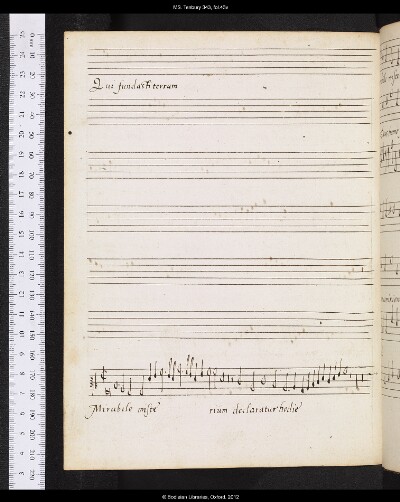 MS. Tenbury 340, fol.45v
Qui fundasti terram
Mirabile miste' rium declaratur hodie'
© Bodleian Libraries, Oxford, 2012